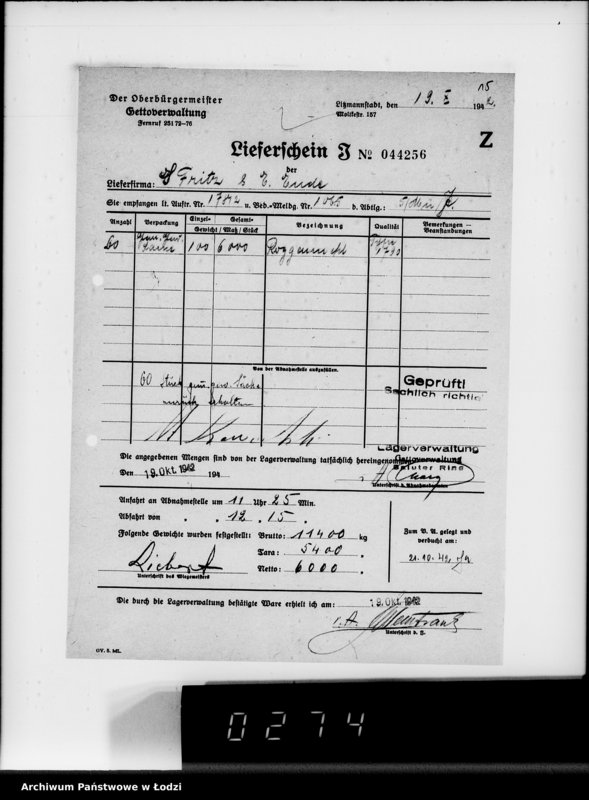 Der Oberbürgermeister
Gettoverwaltung
Fernruf 251 72–76
Litzmannstadt, den 19. X 194 2.
Moltkestr. 157
Z
Lieferschein J № 044256
der
Lieferfirma: Fritz & E. Ende
Sie empfangen lt. Auftr. Nr. 1782 u. Bed.-Meldg. Nr. 1065 d. Abtlg.:
Anzahl Verpackung Einzel- Gesamt- Bezeichnung Qualität Bemerkungen –
Gewicht / Maß / Stück Beanstandungen
60 100 6000 Roggenmehl Type 1790
Von der Abnahmestelle auszufüllen.
60 Stück gem. gew. Säcke
zurück erhalten
Geprüft!
Sachlich richtig
Lagerverwaltung
Gettoverwaltung
Baluter Ring
Die angegebenen Mengen sind von der Lagerverwaltung tatsächlich hereingenommen
Den 19. Okt. 1942 194
Unterschrift d. Abnahmebeamten
Anfahrt an Abnahmestelle um 11 Uhr 25 Min.
Abfahrt von " " 12 " 15 "
Folgende Gewichte wurden festgestellt: Brutto: 11400 kg
Tara: 5400 "
Netto: 6000 "
Liebert
Unterschrift des Wiegemeisters
Zum B. A. gelegt und
verbucht am:
21.10.42
Die durch die Lagerverwaltung bestätigte Ware erhielt ich am: 19. Okt. 1942
i. A.
Unterschrift d. J.
GV. 5. ML.
0274
Archiwum Państwowe w Łodzi